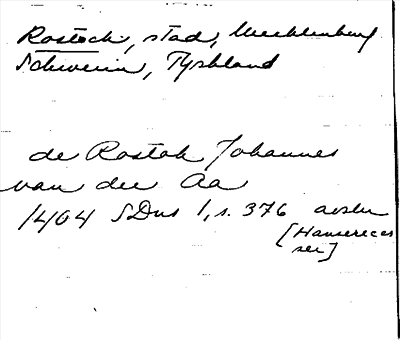 Rostock, stad, Mecklenburg
Schwerin, Tyskland
de Rostok Johannes
van der Aa
1404 SDns 1, s. 376 avskr
[Hansereces
ser]